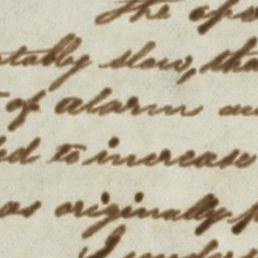 The ope
tably slow, tha
of alarm an
ed to increase
as originally
I under